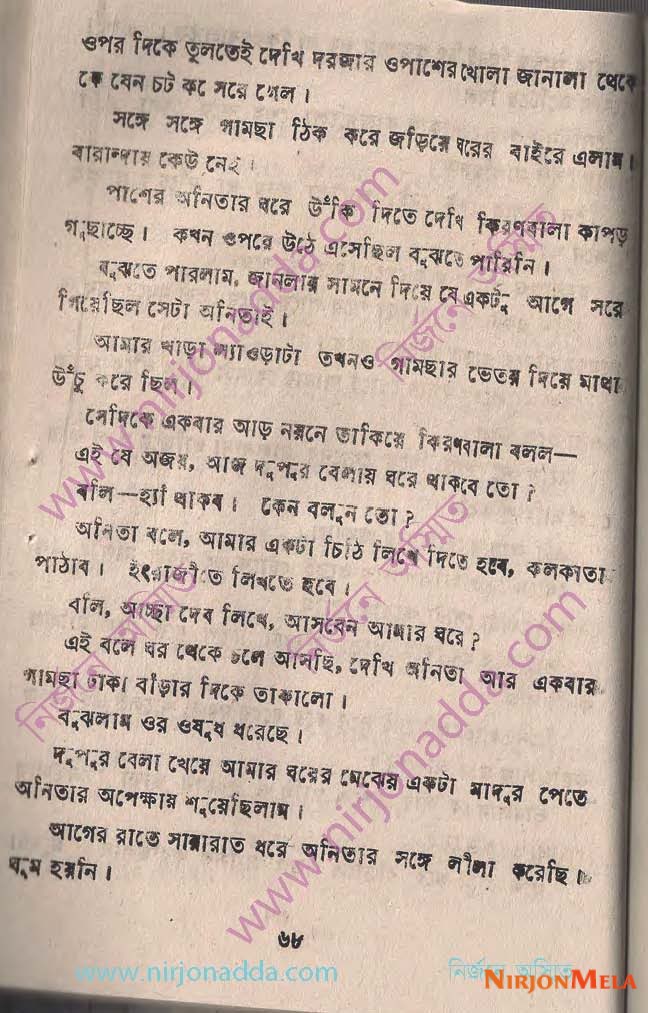 ওপর দিকে তুলতেই দেখি দরজার ওপাশের খোলা জানালা থেকে
কে যেন চট কে সরে গেল।
সঙ্গে সঙ্গে গামছা ঠিক করে জড়িয়ে ঘরের বাইরে এলাম।
বারান্দায় কেউ নেই।
পাশের অনিতার ঘরে উঁকি দিতে দেখি কিরণবালা কাপড়
গুছোচ্ছে। কখন ওপরে উঠে এসেছিল বুঝতে পারিনি।
বুঝতে পারলাম, জানলার সামনে দিয়ে যে একটু আগে সরে
গিয়েছিল সেটা অনিতাই।
আমার খাড়া ল্যাওড়াটা তখনও গামছার ভেতর দিয়ে মাথা
উঁচু করে ছিল।
সেদিকে একবার আড় নয়নে তাকিয়ে কিরণবালা বলল—
এই যে অজয়, আজ দুপুর বেলায় ঘরে থাকবে তো?
বলি—হ্যাঁ থাকব। কেন বলুন তো?
অনিতা বলে, আমার একটা চিঠি লিখে দিতে হবে, কলকাতা
পাঠাব। ইংরাজীতে লিখতে হবে।
বলি, আচ্ছা দেব লিখে, আসবেন আমার ঘরে?
এই বলে ঘর থেকে চলে আসছি, দেখি অনিতা আর একবার
গামছা ঢাকা বাঁড়ার দিকে তাকালো।
বুঝলাম ওর ওষুধ ধরেছে।
দুপুর বেলা খেয়ে আমার ঘরের মেঝেয় একটা মাদুর পেতে
অনিতার অপেক্ষায় শুয়েছিলাম।
আগের রাতে সারারাত ধরে অনিতার সঙ্গে লীলা করেছি।
ঘুম হয়নি।
৬৮
www.nirjonadda.com
নির্জনে অস্মিত
www.nirjonadda.com
নির্জনে অস্মিত
নির্জনে অস্মিত
www.nirjonadda.com
নির্জনে অস্মিত
NIRJONMELA